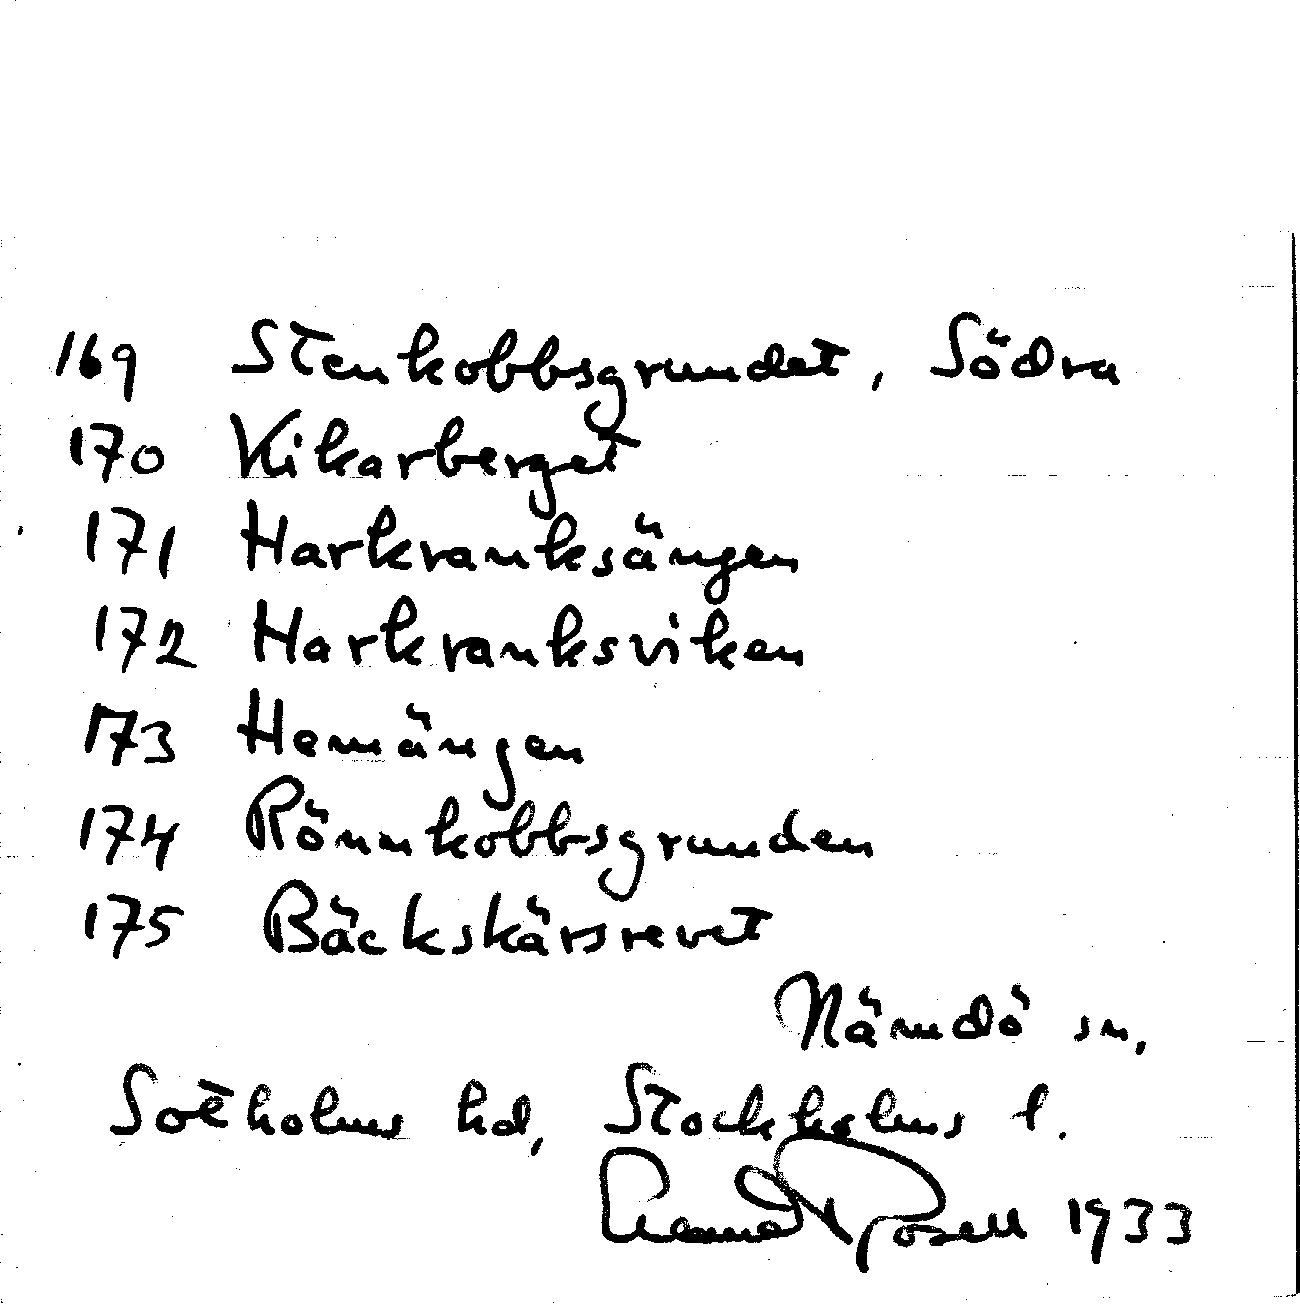 169 Stenkobbsgrundet, Södra
170 Kikarberget
171 Harkranksängen
172 Harkranksviken
173 Hemängen
174 Rönnkobbsgrunden
175 Bäckskärsrevet
Nämdö sn,
Sotholms hd, Stockholms l.
Rosell 1933